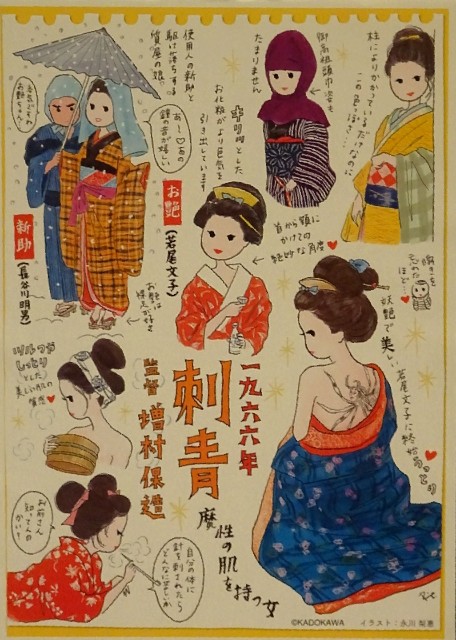 使用人の新助と
駆け落ちする
質屋の娘
あ〜♡あの
鐘の音が嬉しい
新助
(長谷川明男)
お艶
(若尾文子)
お艶は
キリッとした
お化粧がより色気を
引き出しています
御高祖頭巾姿も
たまりません
柱によりかかっているだけなのに
この色っぽさ…
首から顎に
かけての
絶妙な角度♥
瞬きを
忘れた
ほど…
妖艶で美しい
若尾文子に終始うっとり
ツルツル
しっとり
とした
美しい肌の
質感♥
一九六六年
刺青
監督 増村保造
魔性の肌を持つ女
お前さん
知ってんの
かい?
自分の体に
針を刺されたら
どんなに苦しいか
©KADOKAWA イラスト:永川梨恵